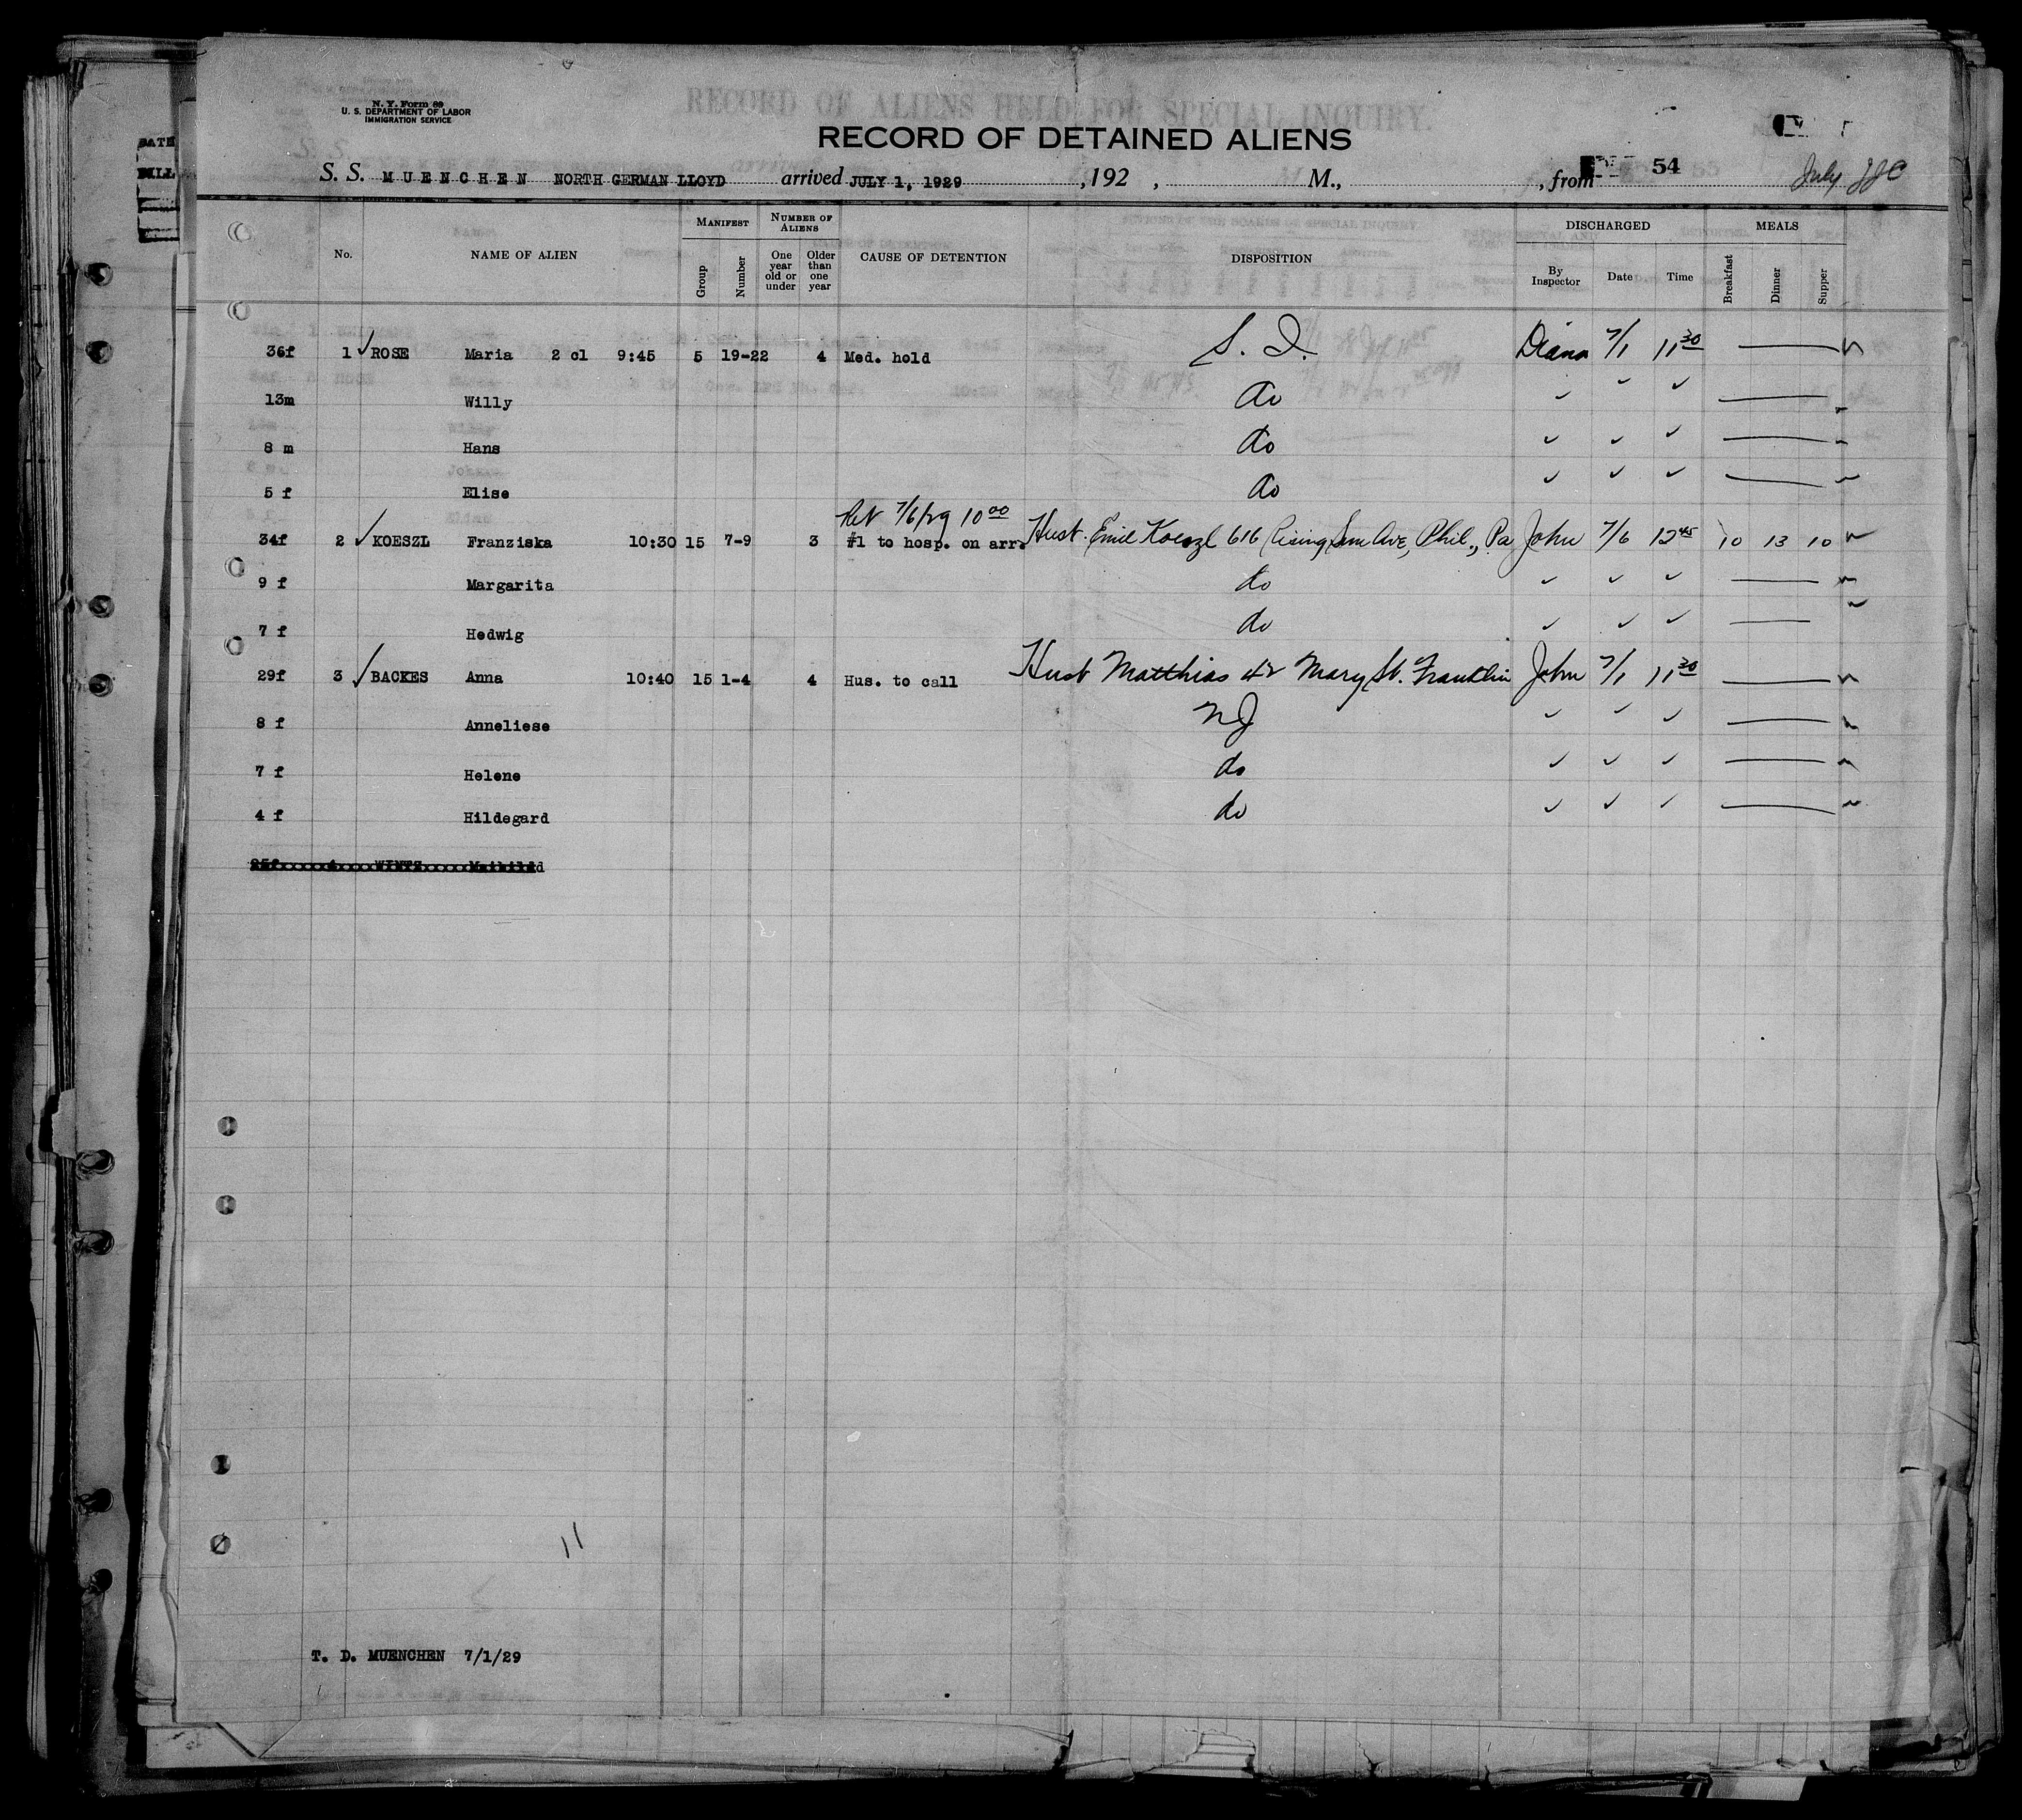 N. Y. Form 89
U. S. DEPARTMENT OF LABOR
IMMIGRATION SERVICE
RECORD OF ALIENS HELD FOR SPECIAL INQUIRY.
RECORD OF DETAINED ALIENS
54
S. S. MUENCHEN NORTH GERMAN LLOYD arrived JULY 1, 1929 , 192 , M., , from July
No. NAME OF ALIEN MANIFEST Group Number NUMBER OF ALIENS One year old or under Older than one year CAUSE OF DETENTION DISPOSITION DISCHARGED By Inspector Date Time MEALS Breakfast Dinner Supper
36f 1 ✓ ROSE Maria 2 cl 9:45 5 19-22 4 Med. hold S. I. Diana 7/1 11 30
13m Willy do ✓ ✓ ✓
8 m Hans do ✓ ✓ ✓
5 f Elise do ✓ ✓ ✓
Ret 7/6/29 10 00
34f 2 ✓ KOESZL Franziska 10:30 15 7-9 3 #1 to hosp. on arr. Husb. Emil Koeszl 616 Rising Sun Ave, Phil., Pa John 7/6 12 45 10 13 10
9 f Margarita do ✓ ✓ ✓
7 f Hedwig do ✓ ✓ ✓
29f 3 ✓ BACKES Anna 10:40 15 1-4 4 Hus. to call Husb Matthias 42 Mary St. Franklin John 7/1 11 30
8 f Anneliese NJ ✓ ✓ ✓
7 f Helene do ✓ ✓ ✓
4 f Hildegard do ✓ ✓ ✓
25f 4 WINTZ
11
T. D. MUENCHEN 7/1/29